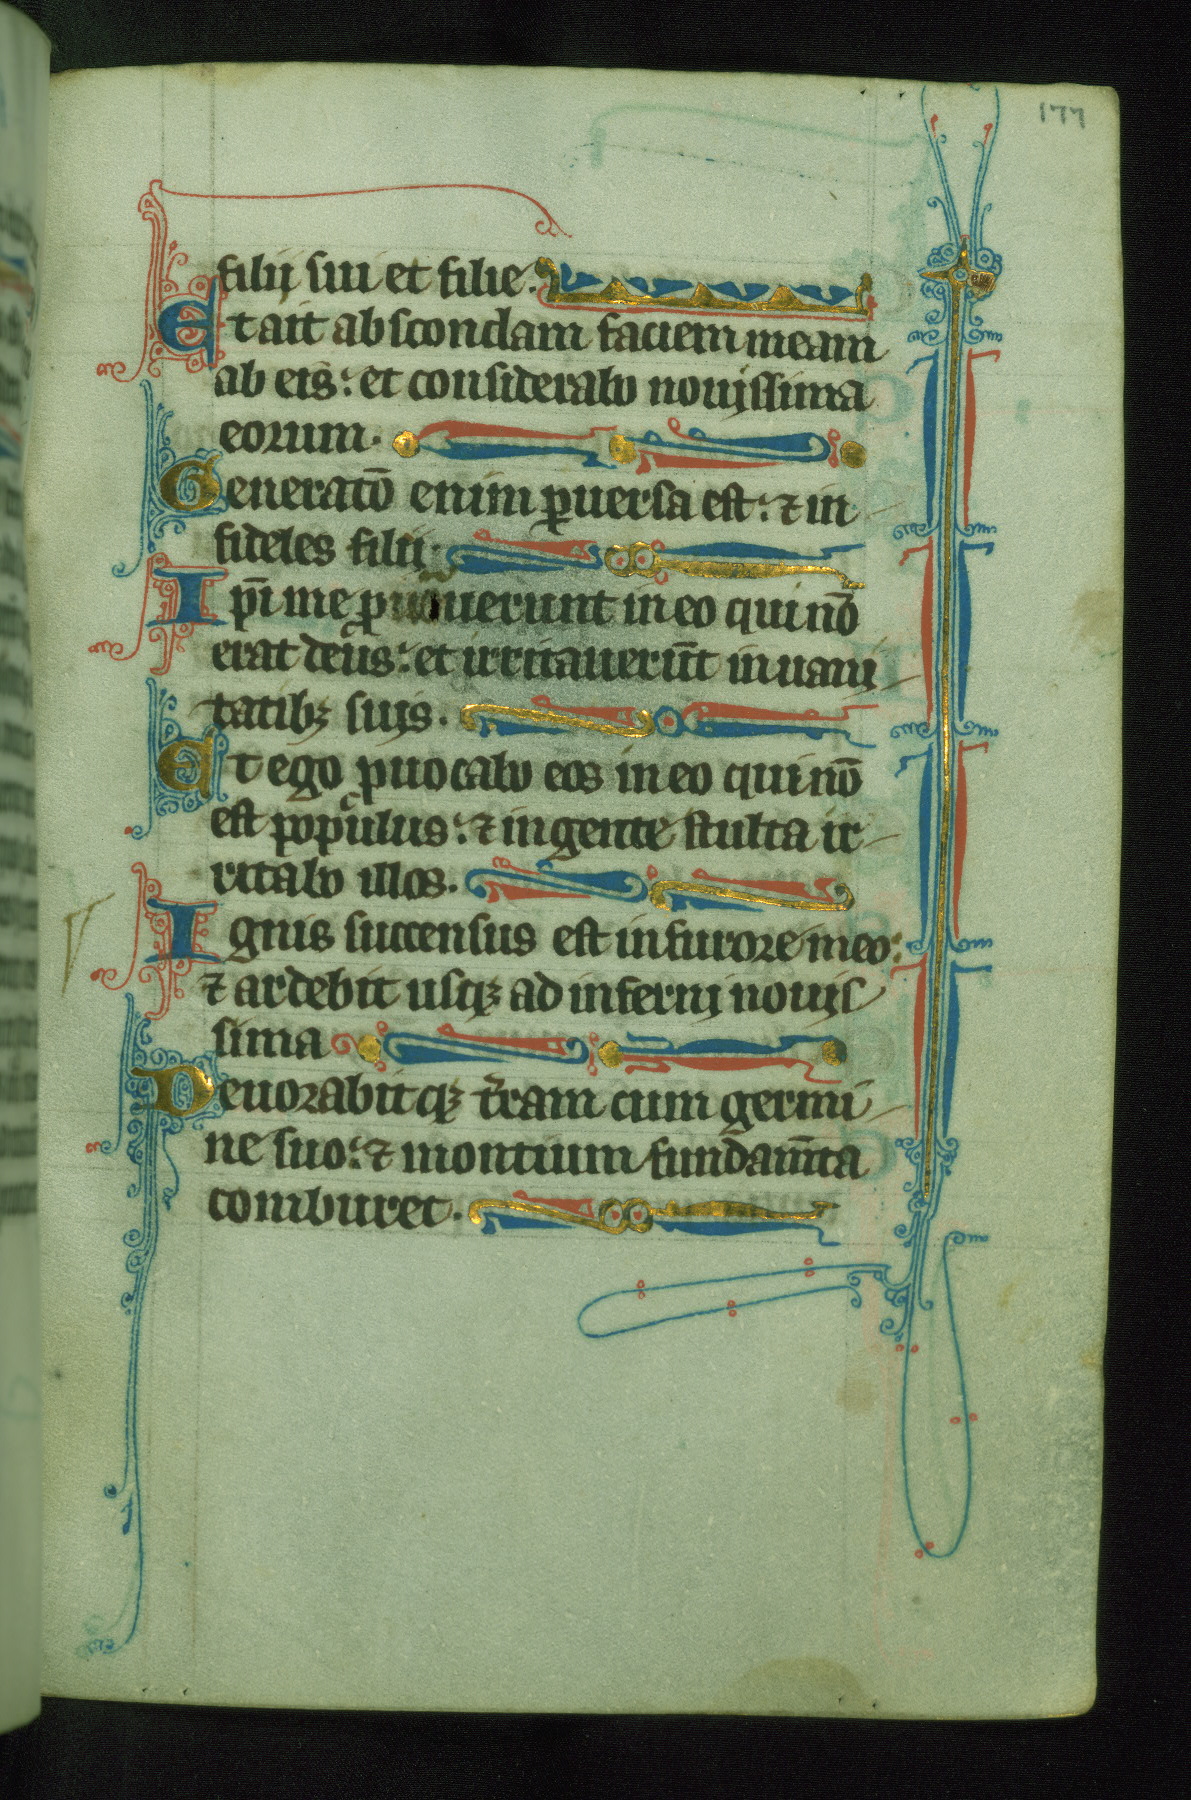 177
filii sui et filie.
Et ait abscondam faciem meam
ab eis: et considerabo nouissima
eorum.
Generatō enim ꝑuersa est: ⁊ in
fideles filii.
Ipī me uerunt in eo qui nō
erat deus: et irritauerūt in uani
tatibꝫ suis.
Et ego puocabo eos in eo qui nō
est populus: ⁊ in gente stulta ir
ritabo illos.
Ignis succensus est in furore meo:
⁊ ardebit usqꝫ ad inferni nouis
sima
Deuorabitqꝫ t̄ram cum germi
ne suo: ⁊ montium fundam̄ta
comburet.